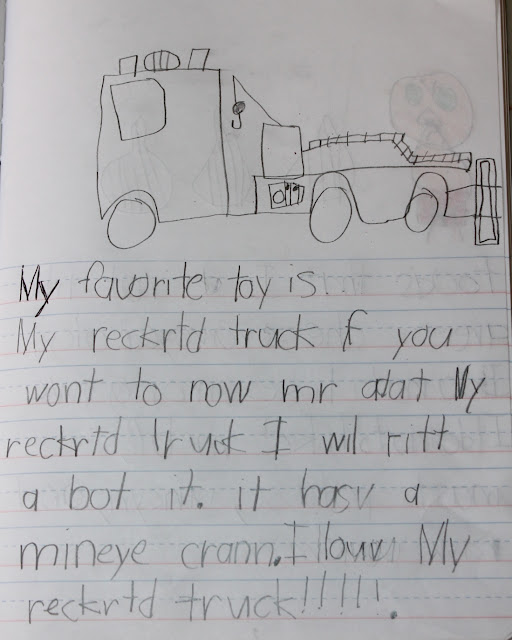 My favorite toy is
My reckrtd truck f you
wont to now mr adat My
reckrtd truck I wil ritt
a bot it. it hasv a
mineye crann. I louv My
reckrtd truck!!!!!.